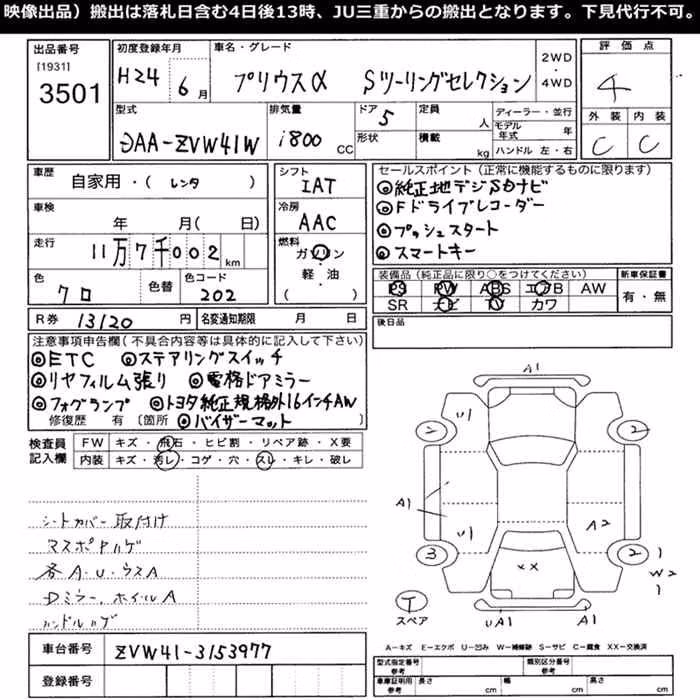 映像出品）搬出は落札日含む4日後13時、JU三重からの搬出となります。下見代行不可。
出品番号 初度登録年月 車名・グレード 2WD・4WD 評価点
[1931]
3501 H24 6月 プリウスα Sツーリングセレクション 4
型式 排気量 ドア 定員 ディーラー・並行 外装 内装
DAA-ZVW41W 1800CC 5 人 モデル年式 年 C C
形状 積載 kg ハンドル 左・右
車歴 自家用・(レンタ) シフト IAT
セールスポイント（正常に機能するものに限ります）
◎純正地デジSDナビ
◎Fドライブレコーダー
◎プッシュスタート
◎スマートキー
車検 年 月( 日) 冷房 AAC
走行 11万7千002km 燃料 ガソリン・軽・油 ( )
装備品（純正品に限り○をつけてください） 新車保証書
PS PW ABS エアB AW 有・無
SR ナビ TV カワ
色 クロ 色替 色コード 202
後日品
R券 13120円 名変通知期限 月 日
注意事項申告欄（不具合内容等は具体的に記入して下さい）
◎ETC ◎ステアリングスイッチ
◎リヤフィルム張り ◎電格ドアミラー
◎フォグランプ ◎トヨタ純正規格外16インチAW
修復歴 有 〔箇所 ◎バイザーマット
検査員記入欄 FW キズ・飛石・ヒビ割・リペア跡・X要
内装 キズ・汚レ・コゲ・穴・スレ・キレ・破レ
シートカバー取付け
マスポヤハゲ
各A・U・ウスA
Dミラー、ホイルA
ハンドルハゲ
A1
U1 2 2
A1
U1 A2
3 XX 2 W2
T スペア UA1 A1
A－キズ E－エクボ U－凹み W－補修跡 S－サビ C－腐食 XX－交換済
車台番号 ZVW41-3153977
登録番号
型式指定番号 参考 類別区分番号 参考
車庫証明用 参考 長さ cm 幅 cm 高さ cm